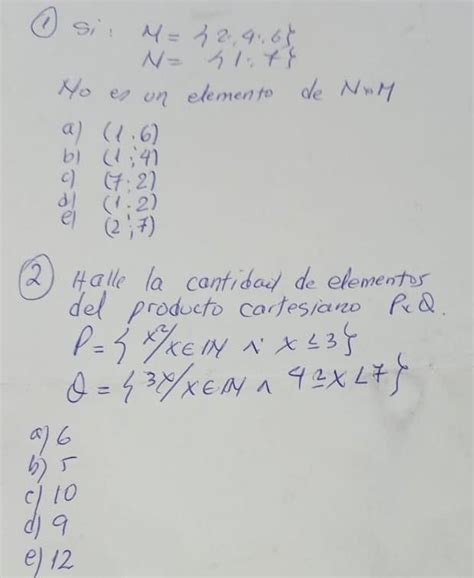 ① Si: M = {2; 4; 6}
N = {1; 7}
No es un elemento de NxM
a) (1; 6)
b) (1; 4)
c) (7; 2)
d) (1; 2)
e) (2; 7)
② Halle la cantidad de elementos
del producto cartesiano PxQ.
P = {x²/x∈IN ∧ x ≤ 3}
Q = {3x/x∈IN ∧ 4 ≤ x < 7}
a) 6
b) 5
c) 10
d) 9
e) 12